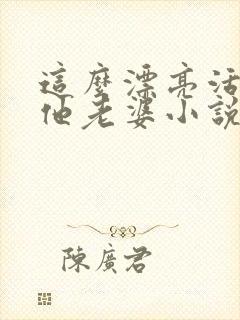 這麼漂亮活
他老婆小說
陳廣君